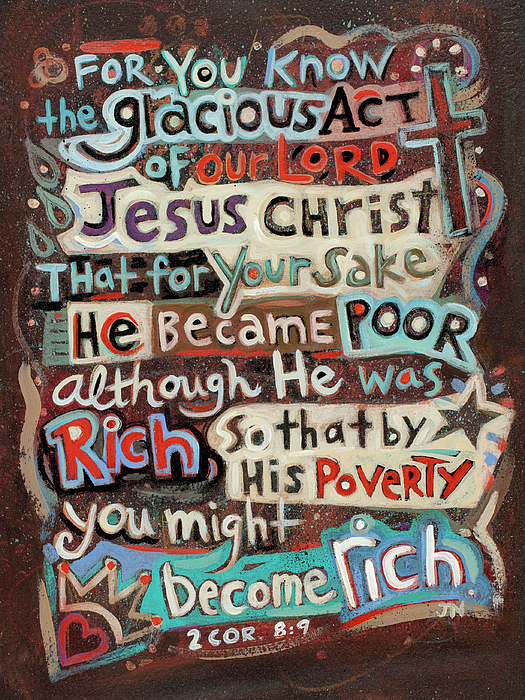 FOR YOU KNOW
the gracious ACT
OF our LORD
JESUS CHRIST
THAT for Your Sake
He BECAME POOR
although He was
Rich, So that by
His POVERTY
you might
become rich.
JN
2 COR 8:9